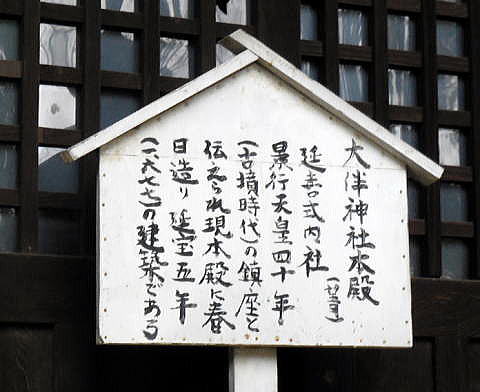 大伴神社本殿
延喜式内社
景行天皇四十年
(古墳時代)の鎮座と
伝えられ現本殿は春
日造り 延宝五年
(一六七七)の建築である